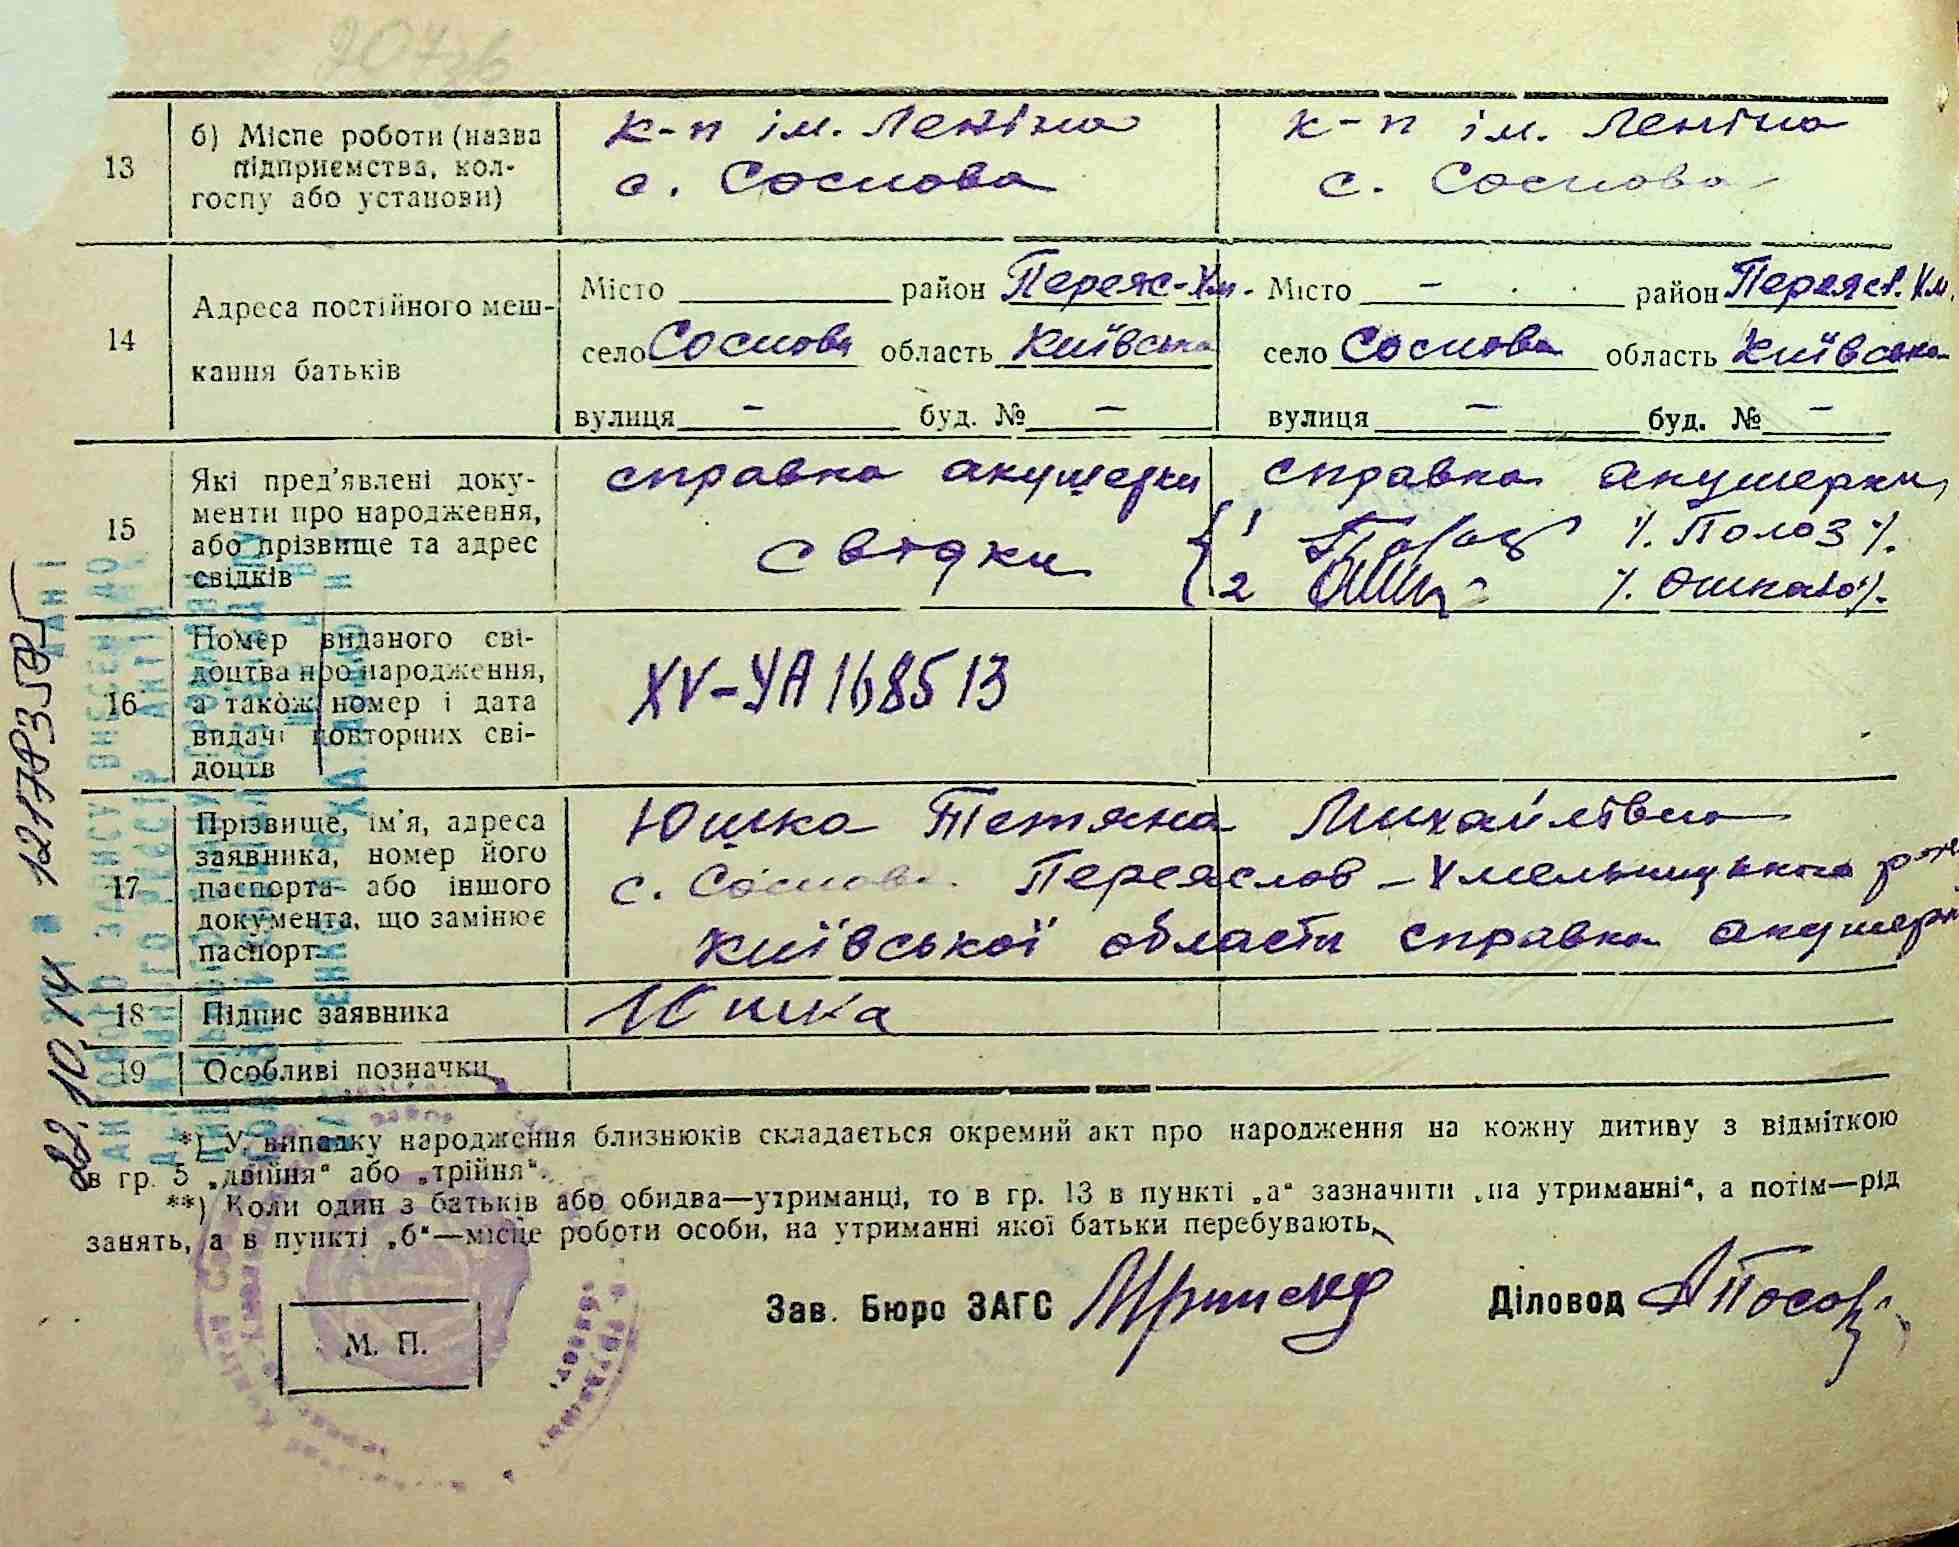 13
б) Місце роботи (назва
підприємства, кол-
госпу або установи)
к-п ім. Леніна
с. Соснова
к-п ім. Леніна
с. Соснова
14
Адреса постійного меш-
кання батьків
Місто район Переяс-Хм.
село Соснова область Київська
вулиця - буд. № -
Місто - район Переясл. Хм.
село Соснова область Київська
вулиця - буд. № -
15
Які пред'явлені доку-
менти про народження,
або прізвище та адрес
свідків
справка акушерки
свідки
справка акушерки
1 /. Полоз /.
2 /. Ошкало /.
16
Номер виданого сві-
доцтва про народження,
а також номер і дата
видачі повторних сві-
доцтв
XV-УА 168513
17
Прізвище, ім'я, адреса
заявника, номер його
паспорта або іншого
документа, що замінює
паспорт
Юшка Тетяна Михайлівна
с. Соснова Переяслов-Хмельницького р-ну
Київської області справка акушерки
18
Підпис заявника
Юшка
19
Особливі позначки
*) У випадку народження близнюків складається окремий акт про народження на кожну дитину з відміткою
в гр. 5 „двійня“ або „трійня“.
**) Коли один з батьків або обидва—утриманці, то в гр. 13 в пункті „а“ зазначити „на утриманні“, а потім—рід
занять, а в пункті „б“—місце роботи особи, на утриманні якої батьки перебувають.
Зав. Бюро ЗАГС
Діловод
М. П.
22.10.14